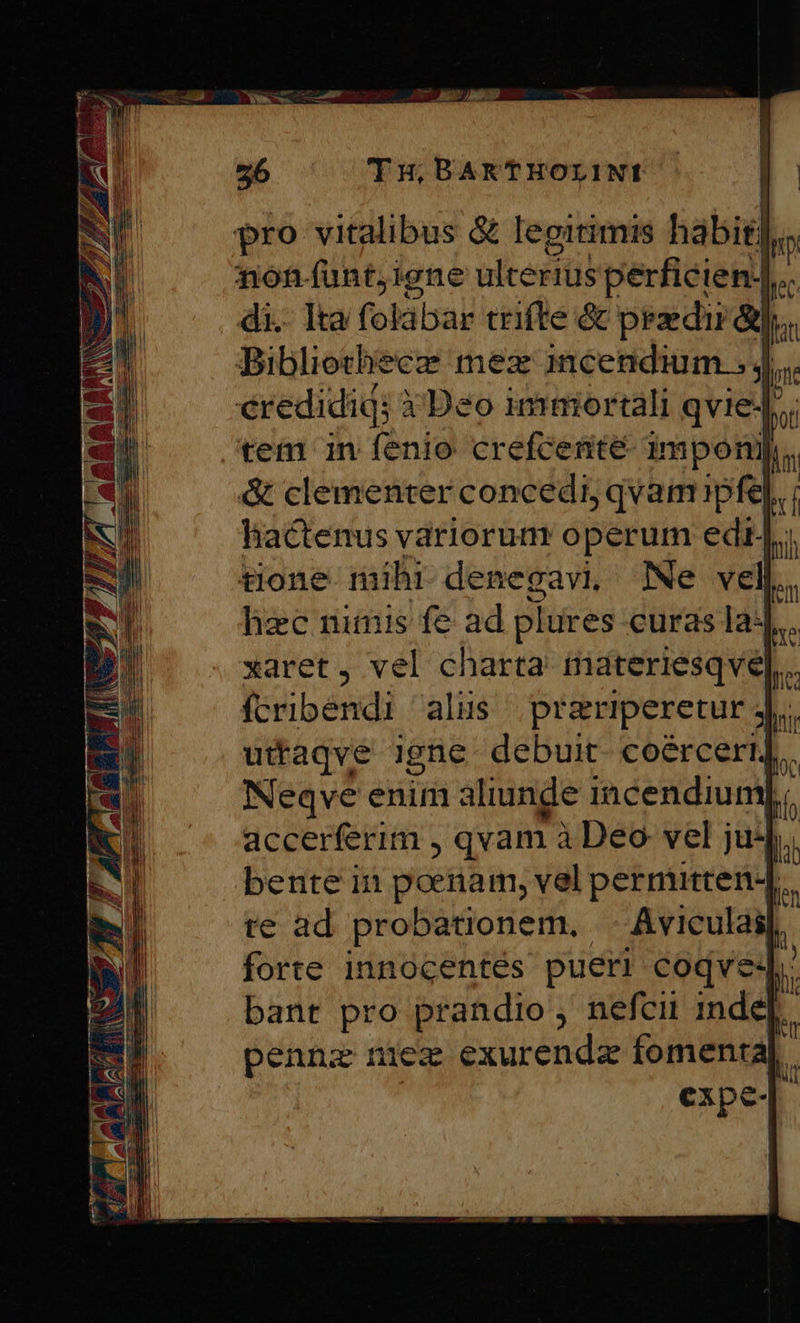 36 TH, BARTHOLINI
pro vitalibus & legitimis habiti
non ſunt, igne ulterius perficien-
di. Ita ſolabar triſte & prædii &
Bibliothecæ meæ incendium,
credidiq; à Deo immortali qvie-
tem in ſenio creſcente imponi
& clementer concedi, qvam ipſe
hactenus variorum operum edi-
tione mihi denegavi. Ne vel
hæc nimis ſe ad plures curas la-
xaret, vel charta materiesqve
ſcribendi aliis præriperetur,
utraqve igne debuit coërceri.
Neqve enim aliunde incendium
accerſerim, qvam à Deo vel ju-
bente in pœnam, vel permitten-
te ad probationem. Aviculas
forte innocentes pueri coqve-
bant pro prandio, neſcii inde
pennæ meæ exurendæ fomenta
expe-